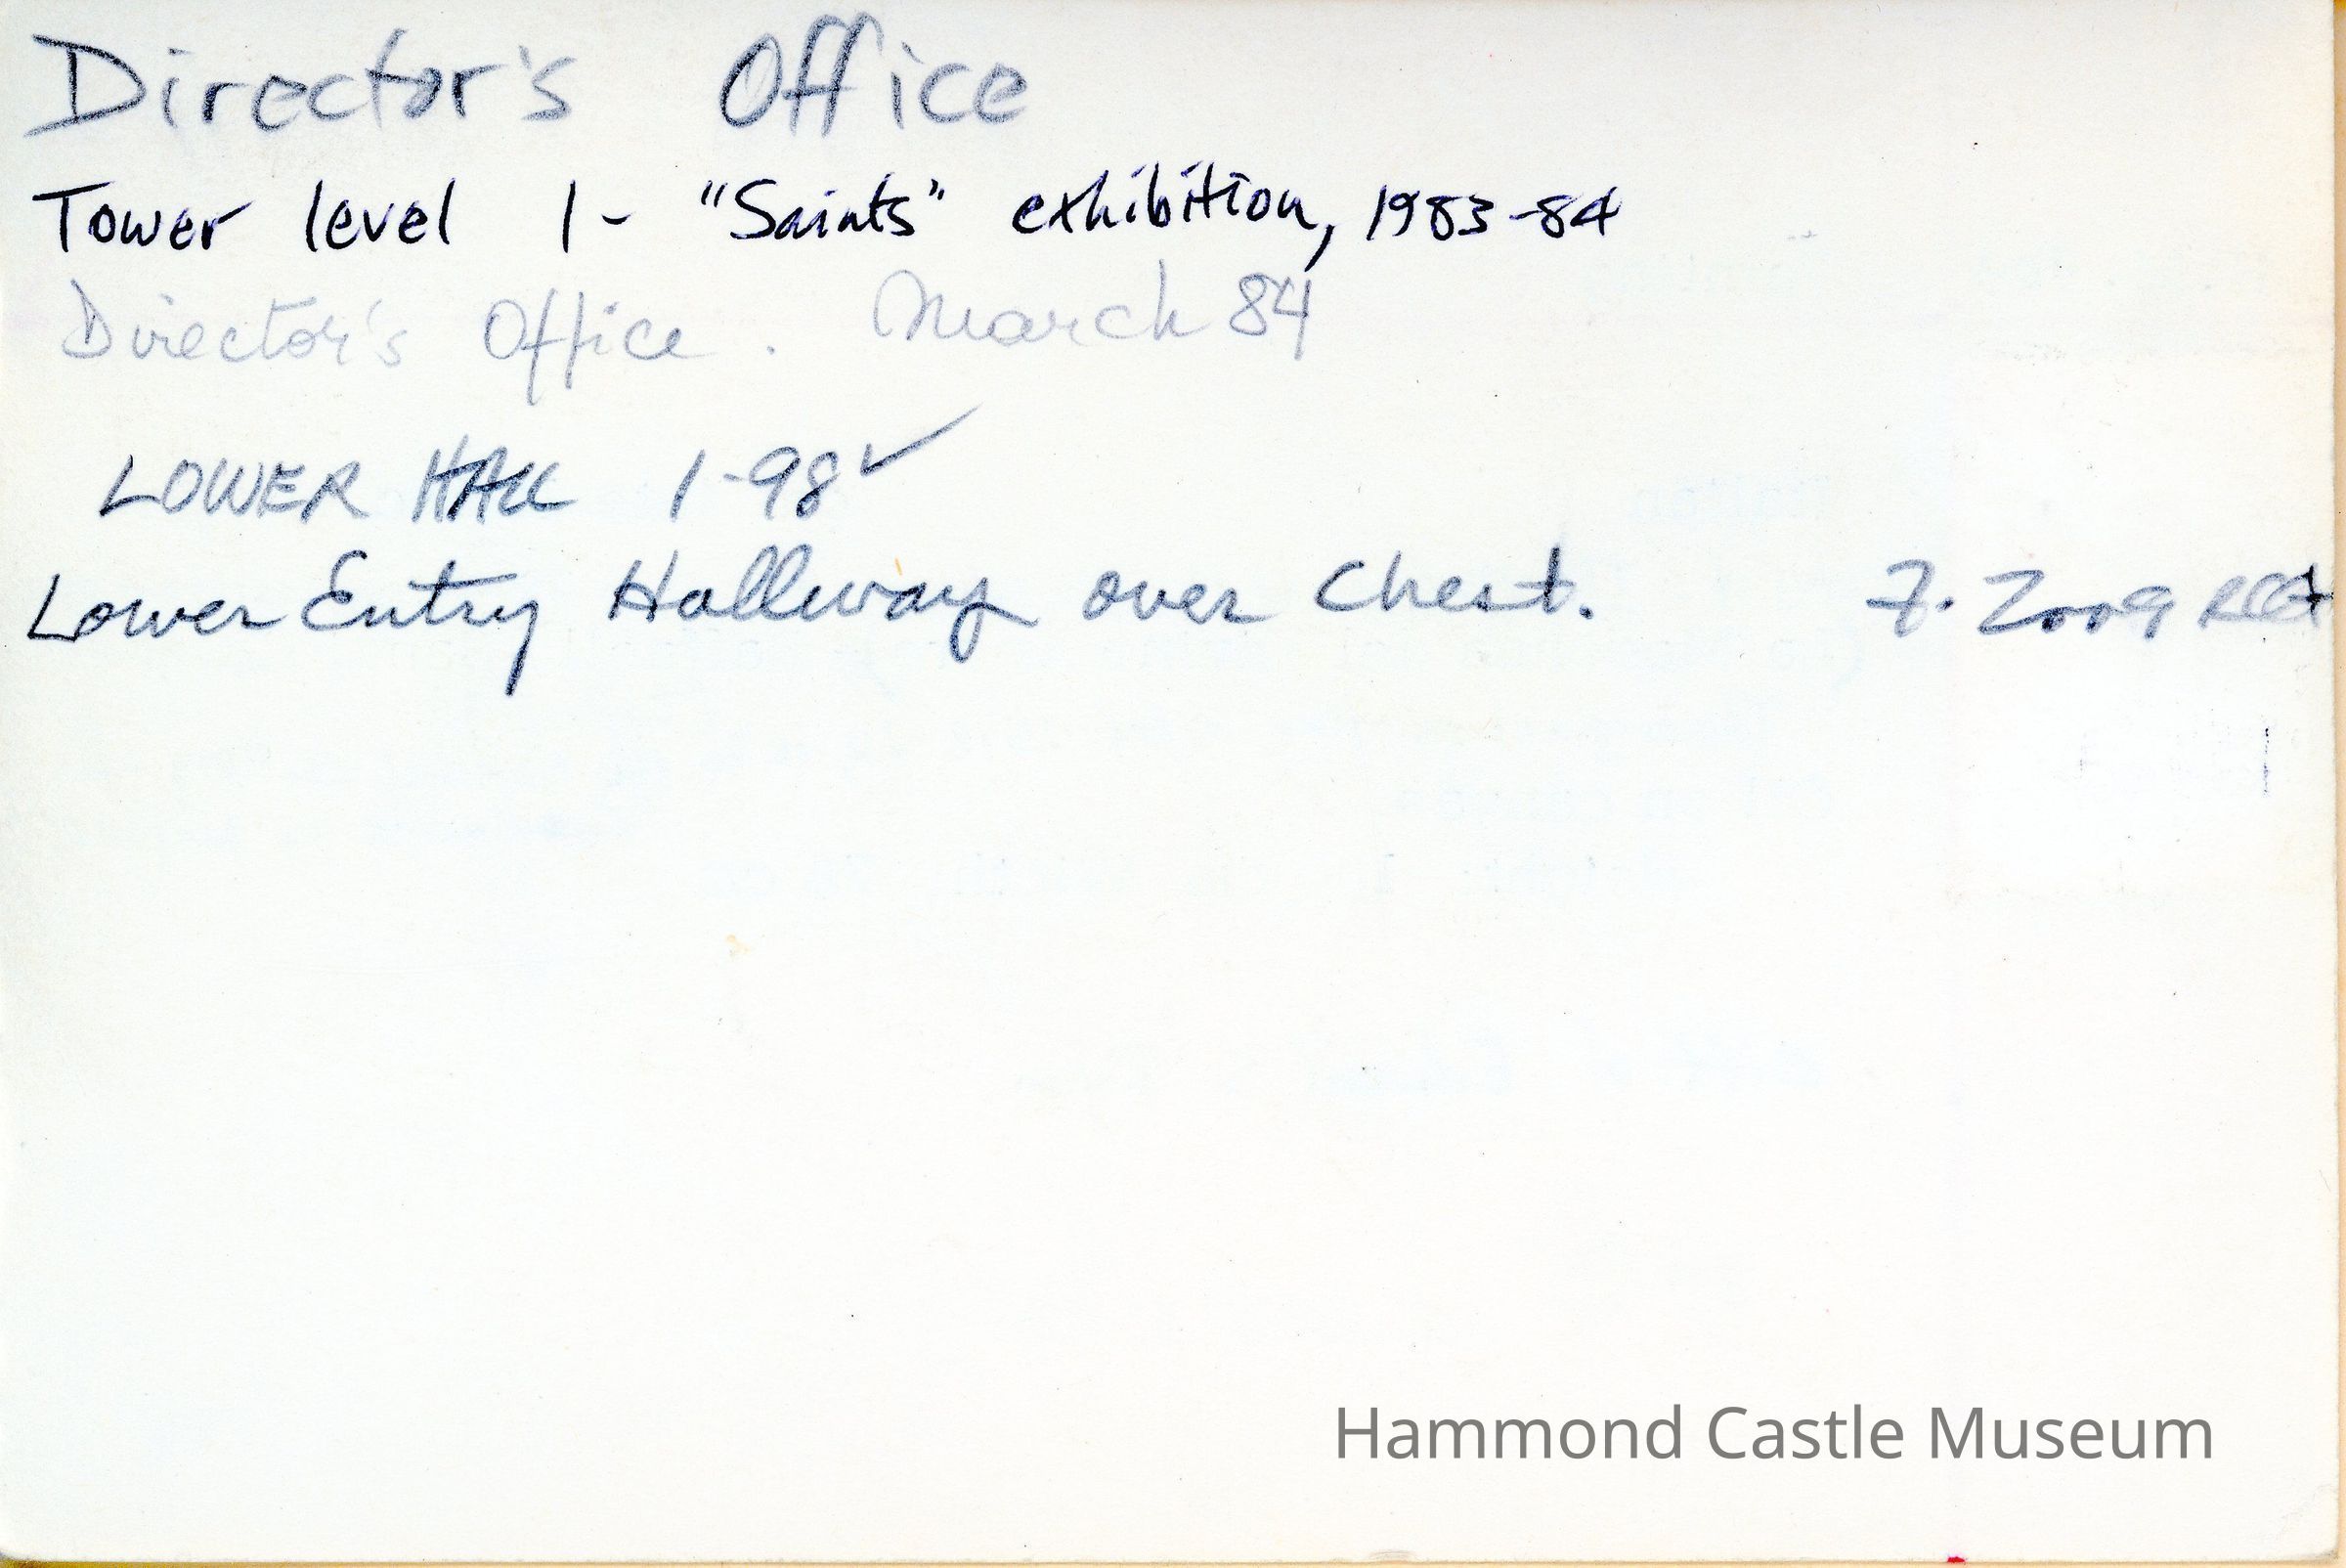 Director's Office
Tower level 1 - "Saints" exhibition, 1983-84
Director's Office. March 84
LOWER HALL 1-98 ✓
Lower Entry Hallway over Chest. 7. 2009
Hammond Castle Museum